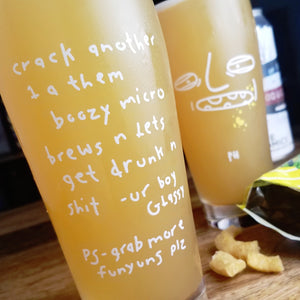 crack another
1 a them
boozy micro
brews n lets
get drunk n
shit -ur boy
Glassy
PS-grab more
funyuns plz